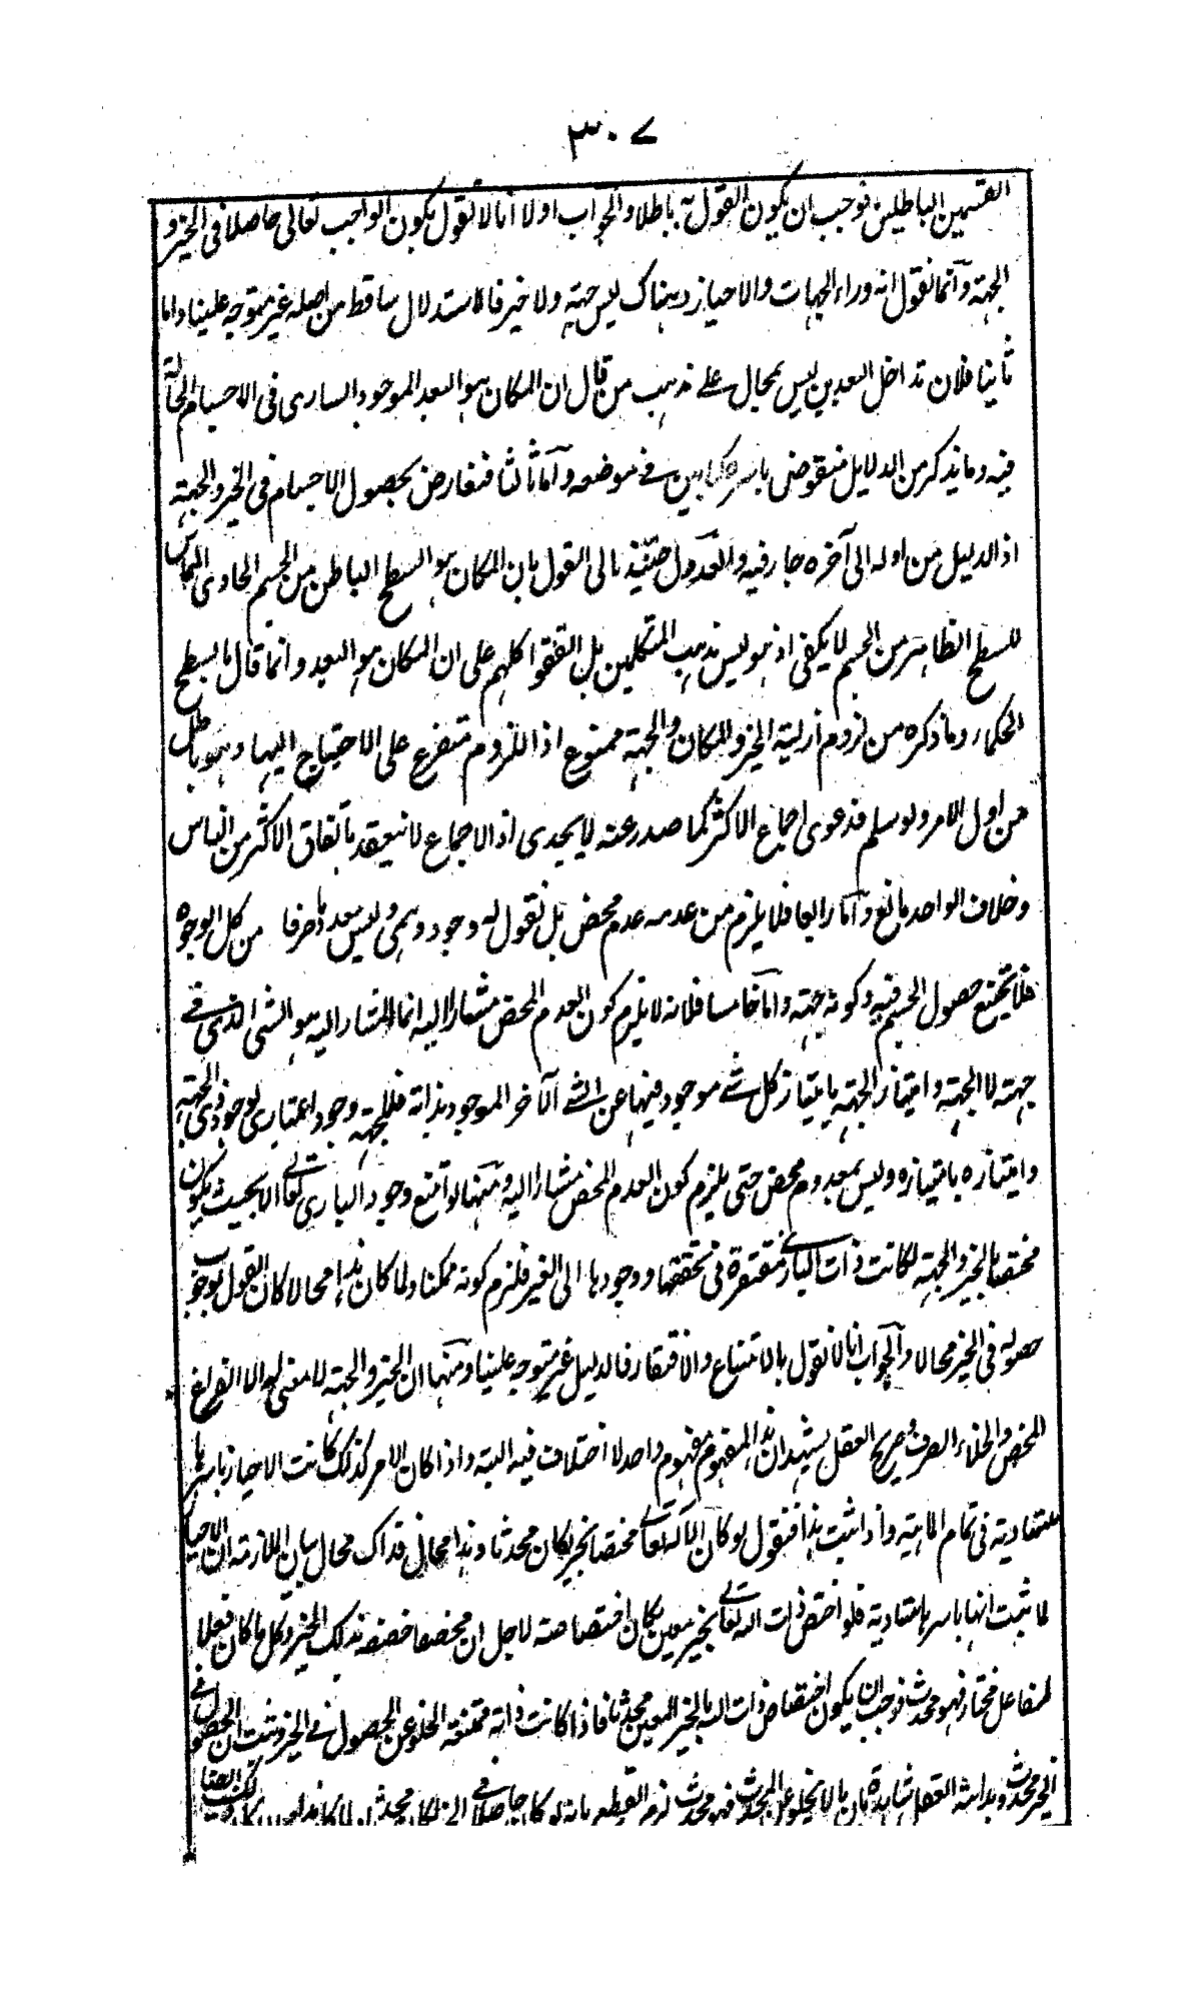 ٣٠٧
القسمين الباطلين فوجب ان يكون القول به باطلا والجواب اولا انا لا نقول بكون الواجب تعالى حاصلا فى الحيز و
الجهة وانما نقول انه وراء الجهات والاحياز وهناك ليس جهة ولا حيز فالاستدلال ساقط من اصله غير متوجه علينا واما
ثانيا فلان تداخل البعدين ليس بمحال على مذهب من قال ان المكان هو البعد الموجود السارى فى الاجسام الحالة
فيه وما يذكر من الدلايل منقوض باسرها كما بين فى موضعه واما ثالثا فنعارض بحصول الاجسام فى الحيز والجهة
اذ الدليل من اوله الى آخره جار فيه والعدول حينئذ الى القول بان المكان هو السطح الباطن من الجسم الحاوى المماس
للسطح الظاهر من الجسم لا يكفى اذ هو ليس مذهب المتكلمين بل اتفقوا كلهم على ان المكان هو البعد وانما قال بالسطح
الحكماء وما ذكره من لزوم ازلية الحيز والمكان والجهة ممنوع اذ اللزوم متفرع على الاحتياج اليها وهو باطل
من اول الامر ولو سلم فدعوى اجماع الاكثر كما صدر عنه لا يجدى اذ الاجماع لا ينعقد باتفاق الاكثر من الناس
وخلاف الواحد مانع واما رابعا فلا يلزم من عدمه عدم محض بل نقول له وجود وهمى وليس معدوما صرفا من كل الوجوه
فلا يمتنع حصول الجسم فيه وكونه جهة واما خامسا فلانه لا يلزم كون العدم المحض مشارا اليه انما المشار اليه هو الشئ الذى فى
جهة لا الجهة وامتياز الجهة بامتياز كل شئ موجود فيها عن الشئ الآخر الموجود بذاته فللجهة وجود اعتبارى بوجود ذى الجهة
وامتيازه بامتيازه وليس بمعدوم محض حتى يلزم كون العدم المحض مشارا اليه ومنها لو امتنع وجود البارى تعالى الا بحيث يكون
مختصا بالحيز والجهة لكانت ذات البارى مفتقرة فى تحققها ووجودها الى الغير فلزم كونه ممكنا ولما كان هذا محالا كان القول بوجوب
حصوله فى الحيز محالا والجواب انا لا نقول بالامتناع والافتقار فالدليل غير متوجه علينا ومنها ان الحيز والجهة لا معنى له الا الفراغ
المحض والخلاء الصرف وصريح العقل يشهد ان هذا المفهوم مفهوم واحد لا اختلاف فيه البتة واذا كان الامر كذلك كانت الاحياز باسرها
متساوية فى تمام الماهية واذا ثبت هذا فنقول لو كان الاله تعالى مختصا بحيز لكان محدثا وهذا محال فذاك محال بيان الملازمة ان الاحياز
لما ثبت انها باسرها متساوية فلو اختص ذات الله تعالى بحيز معين لكان اختصاصه لاجل ان مخصصا خصصه بذلك الحيز وكل ما كان فعلا
لفاعل مختار فهو محدث فوجب ان يكون اختصاص ذات الله بالحيز المعين محدثا فاذا كانت ذاته ممتنعة الخلو عن الحصول فى الحيز وثبت ان الحصول فى
الحيز محدث وبداهة العقل شاهدة بان ما لا يخلو عن المحدث فهو محدث لزم القطع بانه لو كان حاصلا فى الحيز لكان محدثا